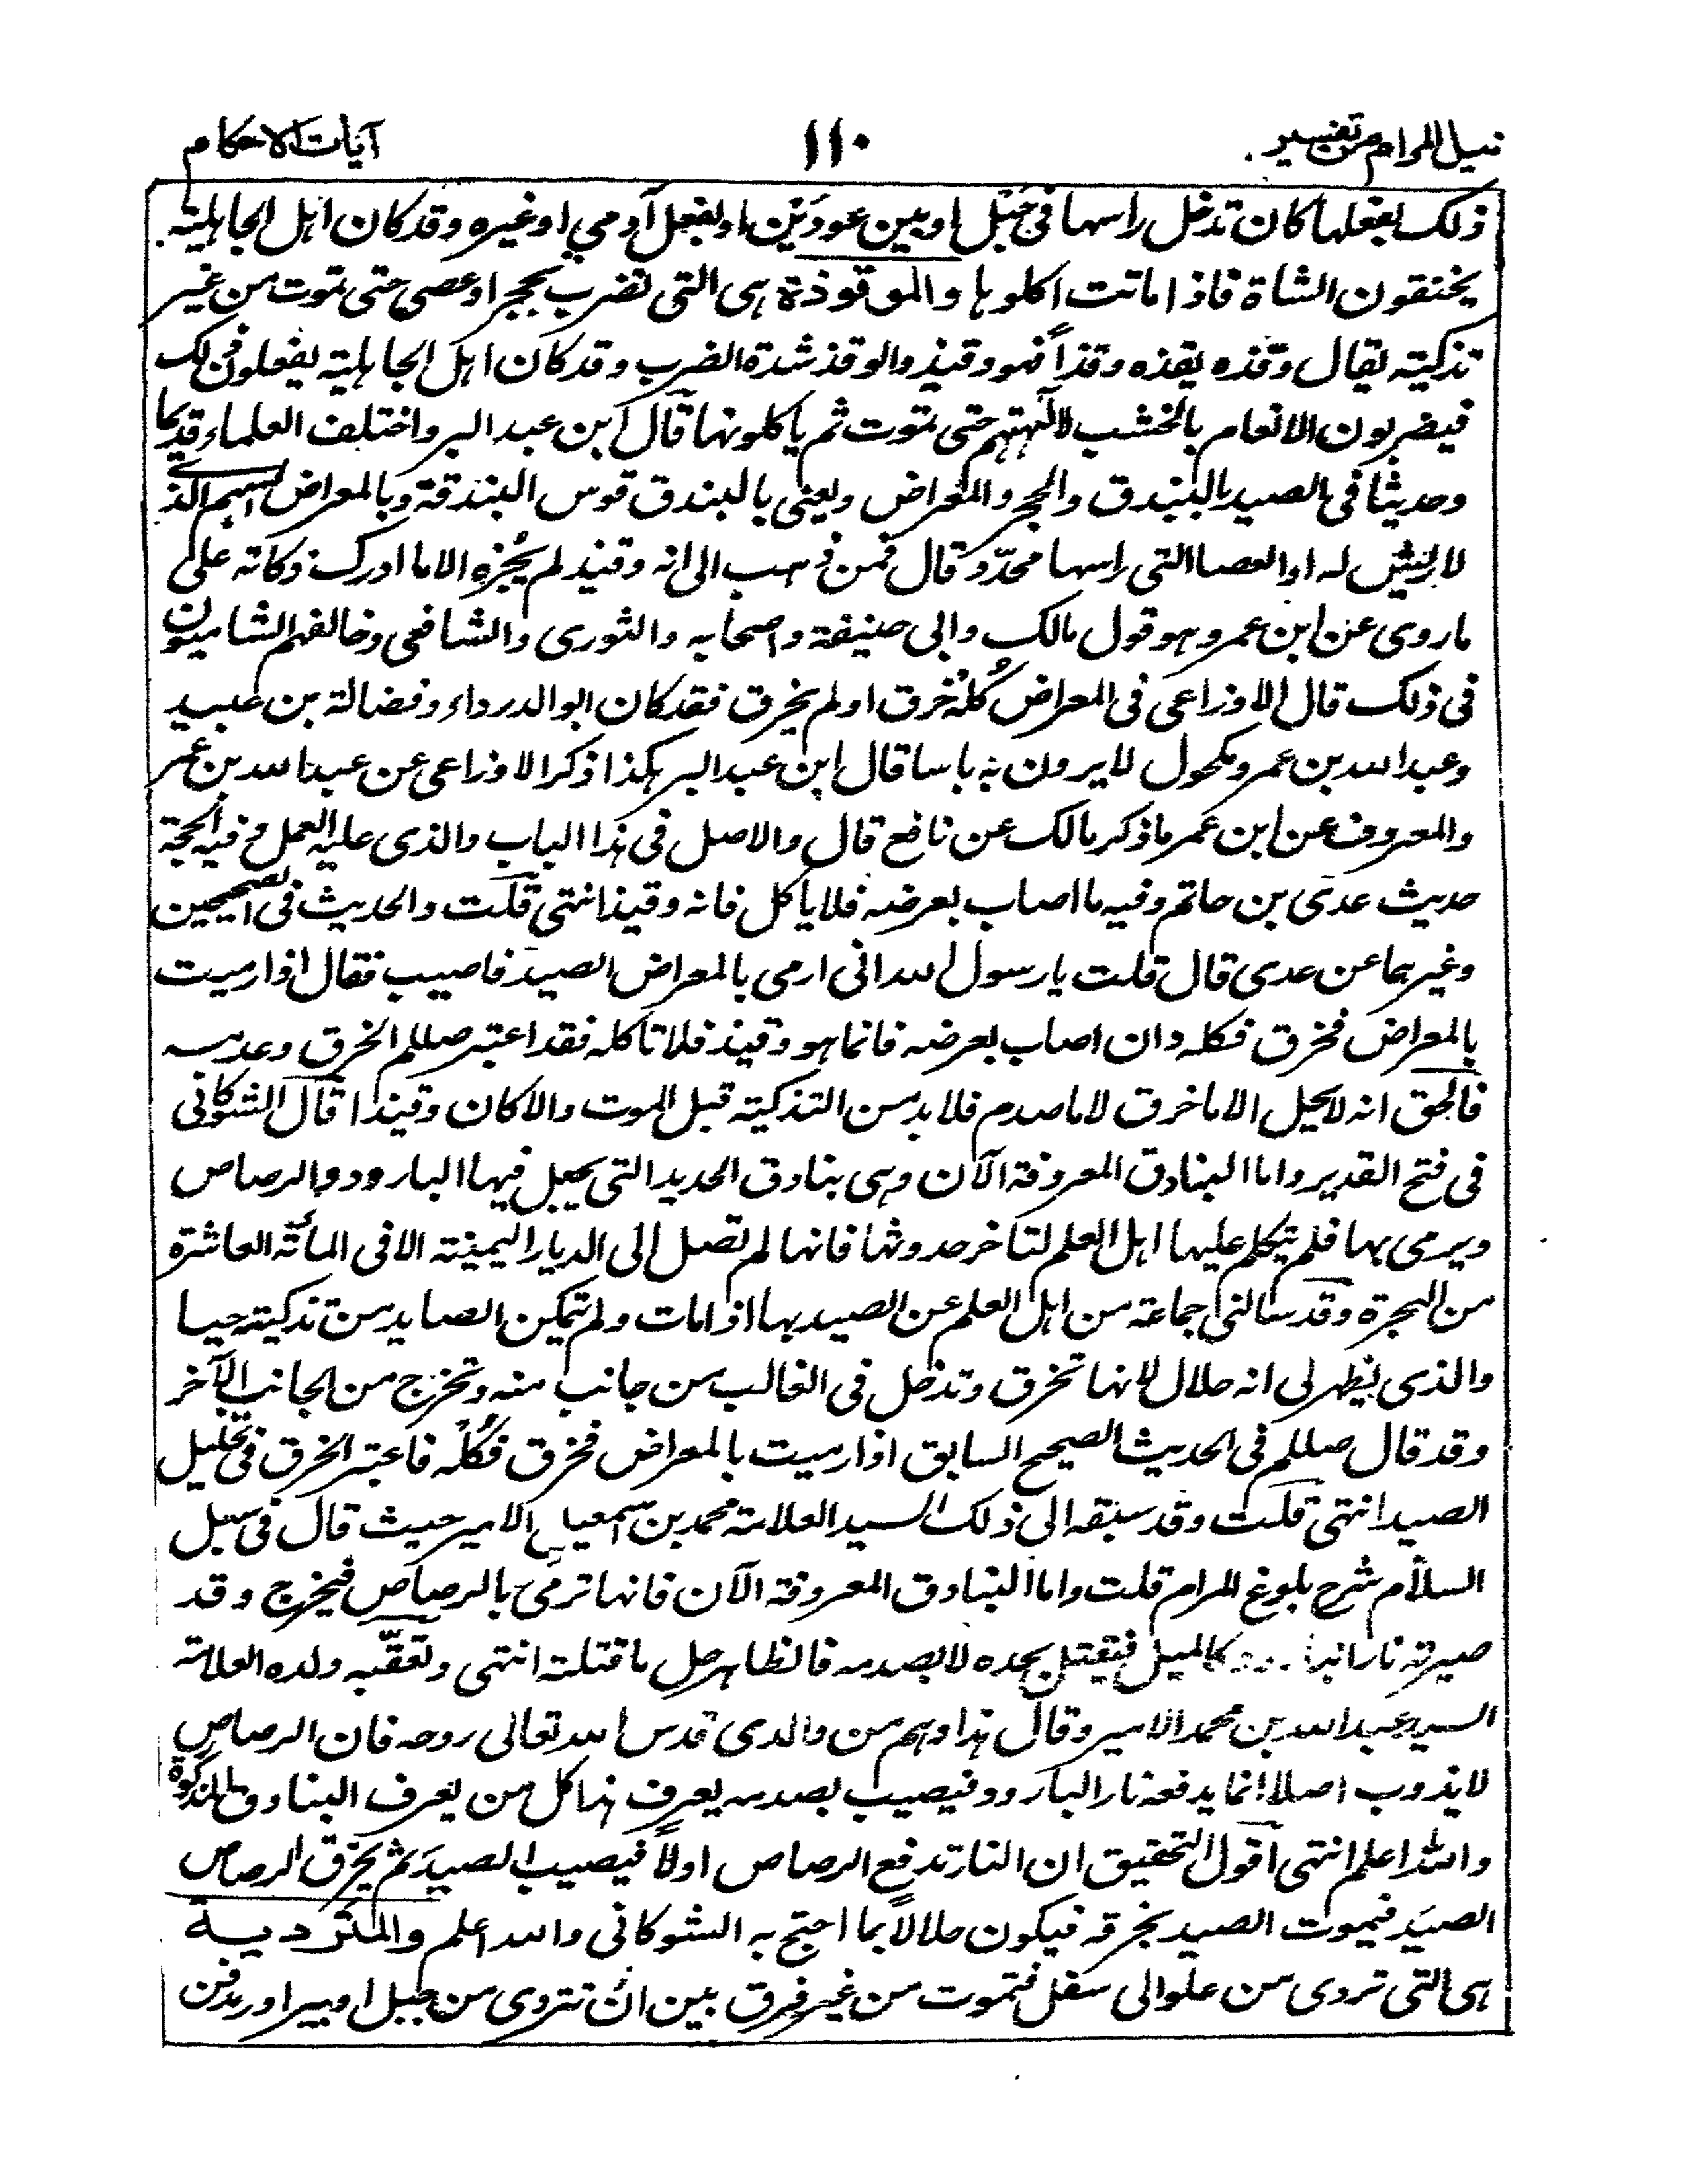 نيل المرام من تفسير
١١٠
آيات الاحكام
ذلك بفعلها كان تدخل راسها فى حَبْل او بين عودَيْن او بفعل آدمي او غيره وقد كان اهل الجاهلية
يخنقون الشاة فاذا ماتت اكلوها والموقوذة هى التى تضرب بحجر او عصى حتى تموت من غير
تذكية يقال وقذه يقذه وقذاً فهو وقيذ والوقذ شدة الضرب وقد كان اهل الجاهلية يفعلون ذلك
فيضربون الانعام بالخشب لآلهتهم حتى تموت ثم ياكلونها قال ابن عبد البر واختلف العلماء قديما
وحديثا فى الصيد بالبندق والحجر والمعراض ويعنى بالبندق قوس البندقة وبالمعراض السهم الذى
لا ريش له او العصا التى راسها محدّد قال فمن ذهب الى انه وقيذ لم يُجزه الا ما ادرك ذكاته على
ما روى عن ابن عمر وهو قول مالك وابى حنيفة واصحابه والثورى والشافعى وخالفهم الشاميون
فى ذلك قال الاوزاعى فى المعراض كُلْهُ خرق او لم يخرق فقد كان ابو الدرداء وفضالة بن عبيد
وعبد الله بن عمر ومكحول لا يرون به باسا قال ابن عبد البر هكذا ذكر الاوزاعى عن عبد الله بن عمر
والمعروف عن ابن عمر ما ذكر مالك عن نافع قال والاصل فى هذا الباب والذى عليه العمل وفيه الحجة
حديث عدى بن حاتم وفيه ما اصاب بعرضه فلا ياكل فانه وقيذ انتهى قلت والحديث فى الصحيحين
وغيرهما عن عدى قال قلت يا رسول الله انى ارمى بالمعراض الصيد فاصيب فقال اذا رميت
بالمعراض فخرق فكله وان اصاب بعرضه فانما هو وقيذ فلا تاكله فقد اعتبر صللم الخرق وعدمه
فالحق انه لا يحل الا ما خرق لا ما صدم فلا بد من التذكية قبل الموت والا كان وقيذا قال الشوكانى
فى فتح القدير واما البنادق المعروفة الآن وهى بنادق الحديد التى يجعل فيها البارود والرصاص
ويرمى بها فلم يتكلم عليها اهل العلم لتاخر حدوثها فانها لم تصل الى الديار اليمنية الا فى المأته العاشرة
من الهجرة وقد سالنى جماعة من اهل العلم عن الصيد بها اذا مات ولم تمكن الصايد من تذكيته حيا
والذى يظهر لى انه حلال لانها تخرق وتدخل فى الغالب من جانب منه وتخرج من الجانب الآخر
وقد قال صللم فى الحديث الصحيح السابق اذا رميت بالمعراض فخرق فكُلْه فاعتبر الخرق فى تحليل
الصيد انتهى قلت وقد سبقه الى ذلك السيد العلامة محمد بن اسمعيل الامير حيث قال فى سبل
السلام شرح بلوغ المرام قلت واما البنادق المعروفة الآن فانها ترمى بالرصاص فيخرج وقد
صيرته نار كالميل فيقتل بحده لا بصدمه فالظاهر حل ما قتلته انتهى وتعقّبه ولده العلامة
السيد عبد الله بن محمد الامير وقال هذا وهم من والدى قدس الله تعالى روحه فان الرصاص
لا يذوب اصلا انما يدفعه نار البارود فيصيب بصدمه يعرف هذا كل من يعرف البنادق المذكورة
والله اعلم انتهى اقول التحقيق ان النار تدفع الرصاص اولاً فيصيب الصيدَ ثم يخرق الرصاص
الصيدَ فيموت الصيد بخرقه فيكون حلالاً بما احتج به الشوكانى والله اعلم والمتردية
هى التى تردى من علو الى سفل فتموت من غير فرق بين ان تتردى من جبل او بير او مدفن